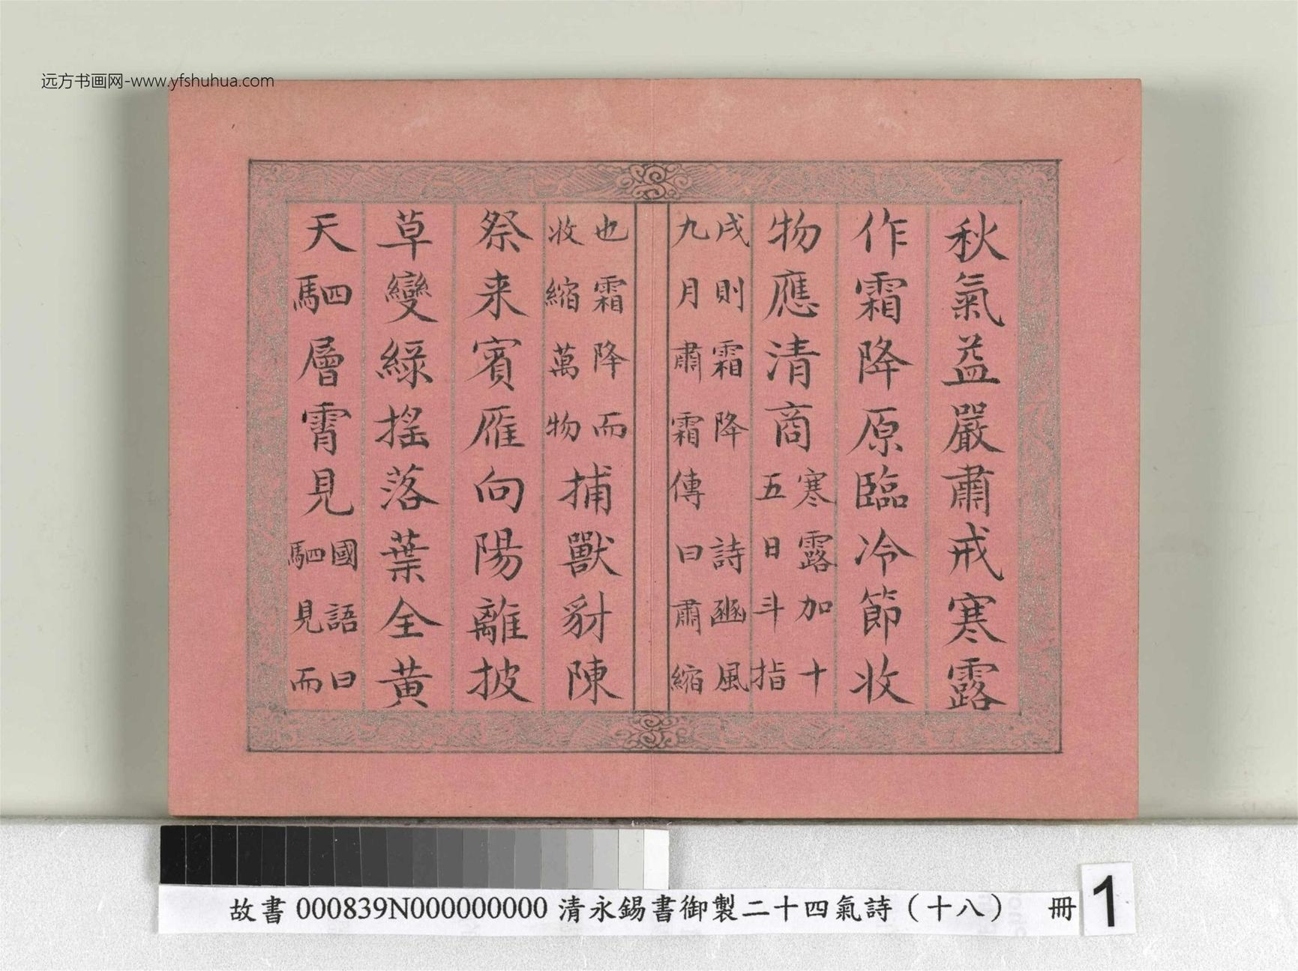 远方书画网-www.yfshuhua.com
秋氣益嚴肅戒寒露
作霜降原臨冷節收
物應清商寒露加十五日斗指
戌則霜降詩豳風
九月肅霜傳曰肅縮
也霜降而收縮萬物捕獸豺陳
祭来賓雁向陽離披
草變綠搖落葉全黄
天駟層霄見國語曰駟見而
故書 000839N000000000 清永錫書御製二十四氣詩（十八） 冊 1